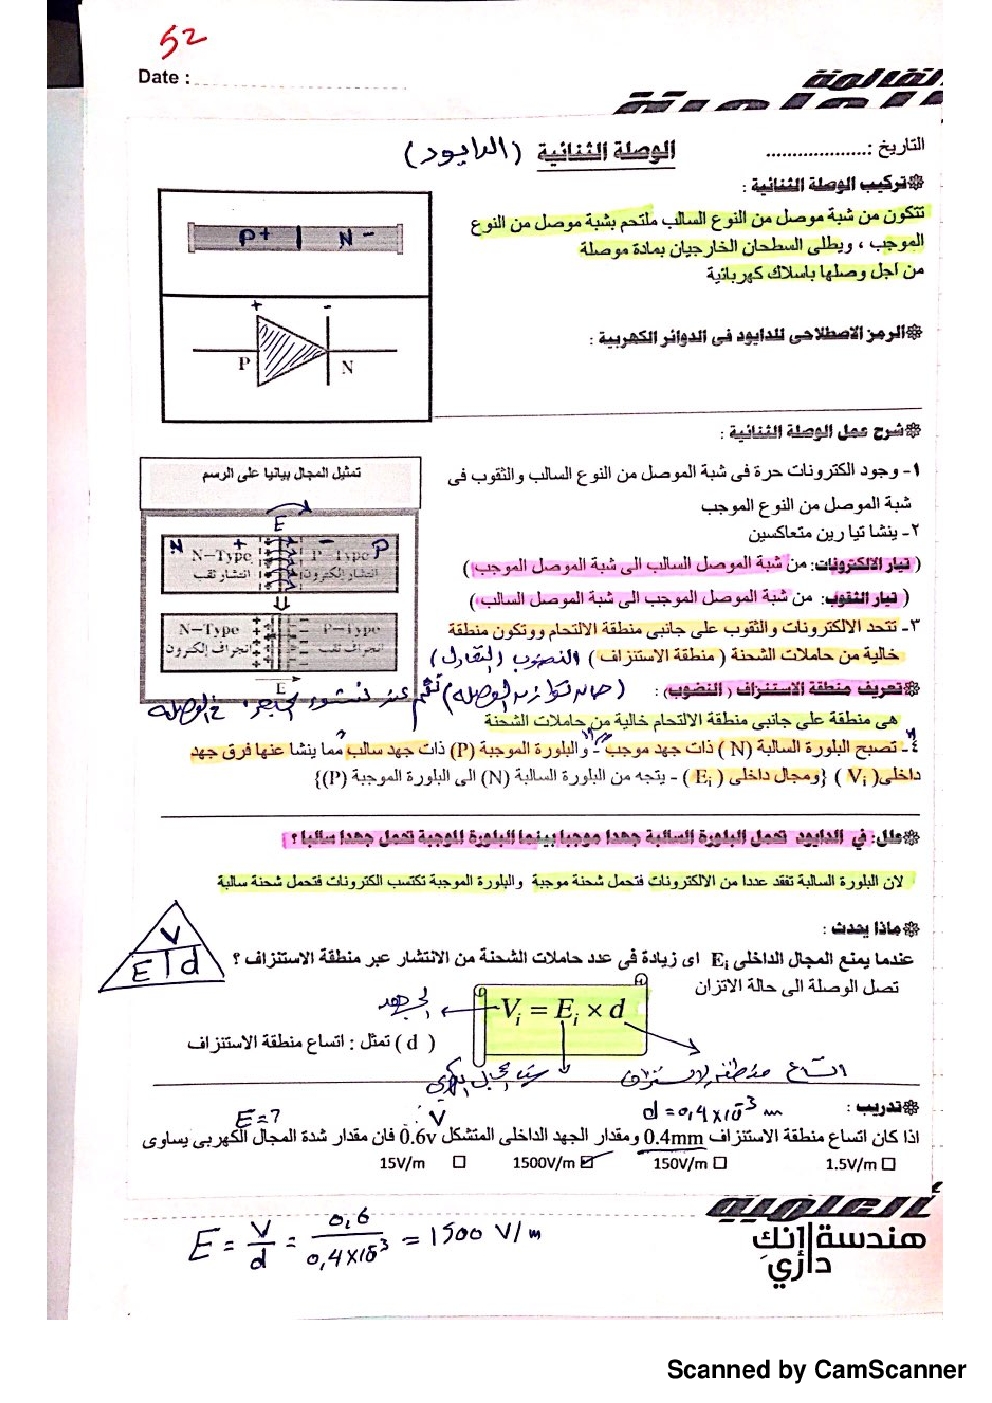 52
Date :
التاريخ :....................
الوصلة الثنائية (الدايود)
تركيب الوصلة الثنائية :
تتكون من شبة موصل من النوع السالب ملتحم بشبة موصل من النوع
الموجب ، ويطلى السطحان الخارجيان بمادة موصلة
من اجل وصلها باسلاك كهربائية
P+ N -
الرمز الاصطلاحى للدايود فى الدوائر الكهربية :
+ -
P N
شرح عمل الوصلة الثنائية :
١- وجود الكترونات حرة فى شبة الموصل من النوع السالب والثقوب فى
شبة الموصل من النوع الموجب
٢- ينشا تيا رين متعاكسين
( تيار الالكترونات: من شبة الموصل السالب الى شبة الموصل الموجب )
( تيار الثقوب: من شبة الموصل الموجب الى شبة الموصل السالب )
٣- تتحد الالكترونات والثقوب على جانبى منطقة الالتحام ووتكون منطقة
خالية من حاملات الشحنة ( منطقة الاستنزاف ) النضوب (التعادل)
تمثيل المجال بيانيا على الرسم
E
N + - P
N-Type P-Type
انتشار ثقب انتشار إلكترون
N-Type P-Type
انجراف إلكترون انجراف ثقب
E
تعريف منطقة الاستنزاف ( النضوب) :
هى منطقة على جانبي منطقة الالتحام خالية من حاملات الشحنة
٤- تصبح البلورة السالبة (N ) ذات جهد موجب - والبلورة الموجبة (P) ذات جهد سالب مما ينشا عنها فرق جهد
داخلى( Vi ) {ومجال داخلى ( Ei ) - يتجه من البلورة السالبة (N) الى البلورة الموجبة (P)}
علل: في الدايود تحمل البلورة السالبة جهدا موجبا بينما البلورة الموجبة تحمل جهدا سالبا ؟
لان البلورة السالبة تفقد عددا من الالكترونات فتحمل شحنة موجبة والبلورة الموجبة تكتسب الكترونات فتحمل شحنة سالبة
ماذا يحدث :
عندما يمنع المجال الداخلى Ei اى زيادة فى عدد حاملات الشحنة من الانتشار عبر منطقة الاستنزاف ؟
تصل الوصلة الى حالة الاتزان
V
E d
Vi = Ei × d
الجهد
( d ) تمثل : اتساع منطقة الاستنزاف
اتساع منطقة الاستنزاف
تدريب :
d = 0,4×10-3 m
V
E=?
اذا كان اتساع منطقة الاستنزاف 0.4mm ومقدار الجهد الداخلى المتشكل 0.6v فان مقدار شدة المجال الكهربى يساوى
1.5V/m 150V/m 1500V/m 15V/m
E = V/d = 0,6/0,4×10-3 = 1500 V/m
العلمية
هندسة إنكِ
دائري
Scanned by CamScanner